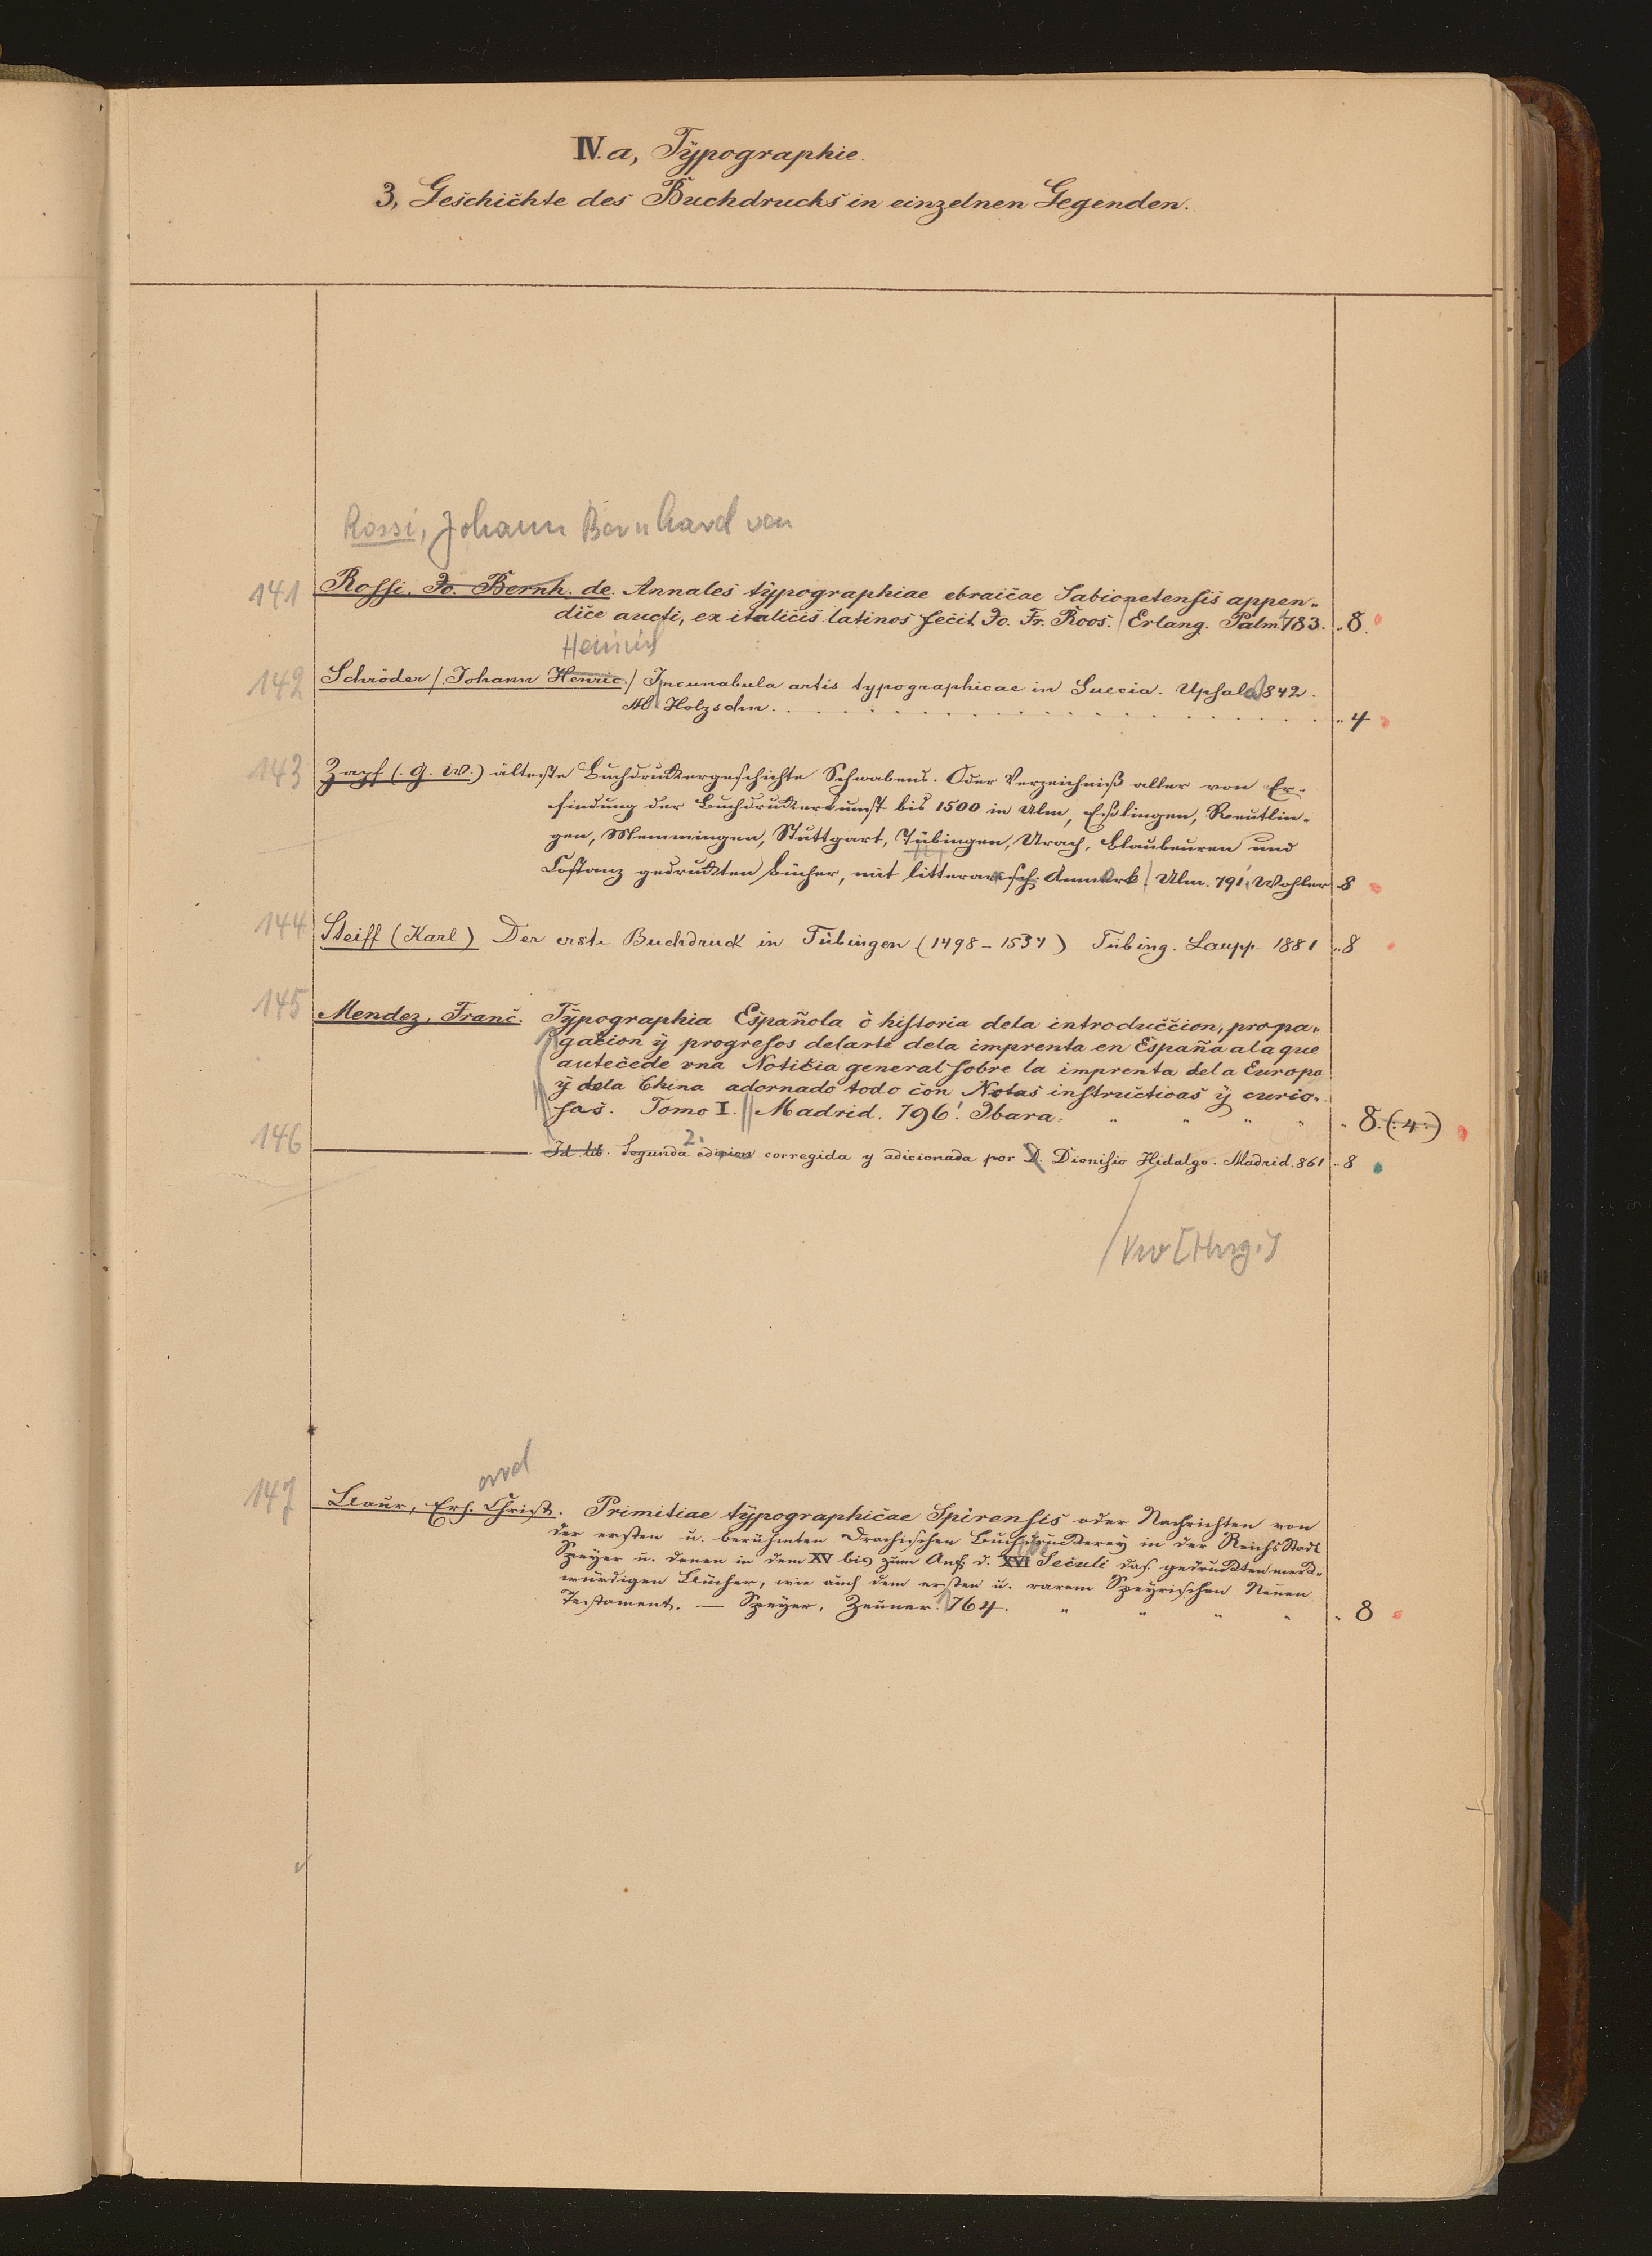 IV.a, Typographie.
3, Geschichte des Buchdrucks in einzelnen Gegenden.
Rossi, Johann Bernhard von
141 Rossi. Jo. Bernh. de. Annales typographiae ebraicae Sabionetensis appen„
dice aucti, ex italicis latinos fecit Jo. Fr. Roos. Erlang. Palm. 783. „ 8.
Heinrich
142 Schröder /. Johann Henric./ Incunabula artis typographicae in Suecia. Upsala 842.
M. Holzschn. . . . . „ 4
143 Zapf (. G. W.) älteste Buchdruckergeschichte Schwabens. Oder Verzeichniß aller von Er-
findung der Buchdruckerkunst bis 1500 in Ulm, Eßlingen, Reutlin-
gen, Memmingen, Stuttgart, Tübingen, Urach, Blaubeuren und
Costanz gedruckten Bücher, mit litterarisch. Anmerk. Ulm. 791. Wohler „ 8
144 Steiff (Karl) Der erste Buchdruck in Tübingen (1498-1534) Tübing. Laupp 1881 „ 8
145 Mendez, Franc. Typographia Española ò historia dela introduccion, propa„
gacion ÿ progresos delarte dela imprenta en España ala que
antecede vna Noticia general sobre la imprenta dela Europa
ÿ dela China adornado todo con Notas instructivas ÿ curio„
sas. Tomo I. Madrid. 796. Ibara. „ „ „ „ „ 8. (:4:)
2.
146 Id. lib. Segunda edicion corregida y adicionada por D. Dionisio Hidalgo. Madrid. 861 „ 8
[Hrsg.]
ard
147 Baur, Erh. Christ. Primitiae typographicae Spirensis oder Nachrichten von
der ersten u. berühmten Drachischen Buchdruckerey in der Reichs Stadt
Speyer u. denen in dem XV bis zum Anf. d. XVI Seculi das. gedruckten merk-
würdigen Bücher, wie auch dem ersten u. rarem Speyrischen Neuen
Testament. — Speyer, Zeuner. 1764. „ „ „ „ „ 8